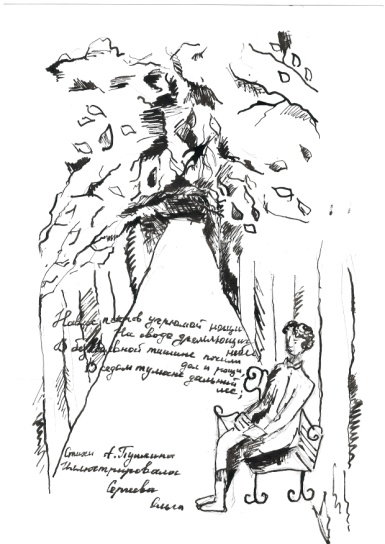 Навис покров угрюмой нощи
На своде дремлющих небес
В безмолвной тишине почили
дол и рощи,
В седом тумане дальний
лес,
Стихи А. Пушкина
Иллюстрировала
Сергеева
Ольга